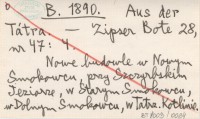 B. 1890. Aus der
Tátra — Zipser Bote 28,
nr 47: 4
Nowe budowle w Nowym
Smokowcu, przy Szczyrbskim
Jeziorze, w Starym Smokowcu,
w Dolnym Smokowcu, w Tatrz. Kotlinie.